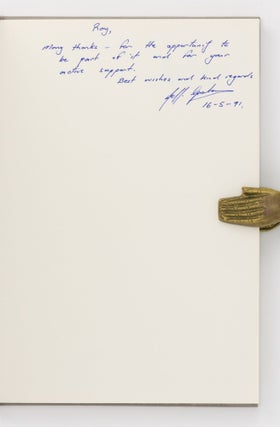 Ray,
Many thanks - for the opportunity to
be part of it and for your
active support.
Best wishes and kind regards
16-5-91.